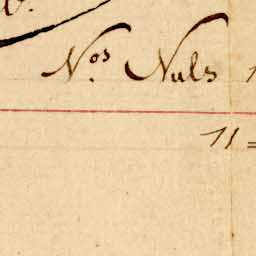 N.os Nuls 1
11 =